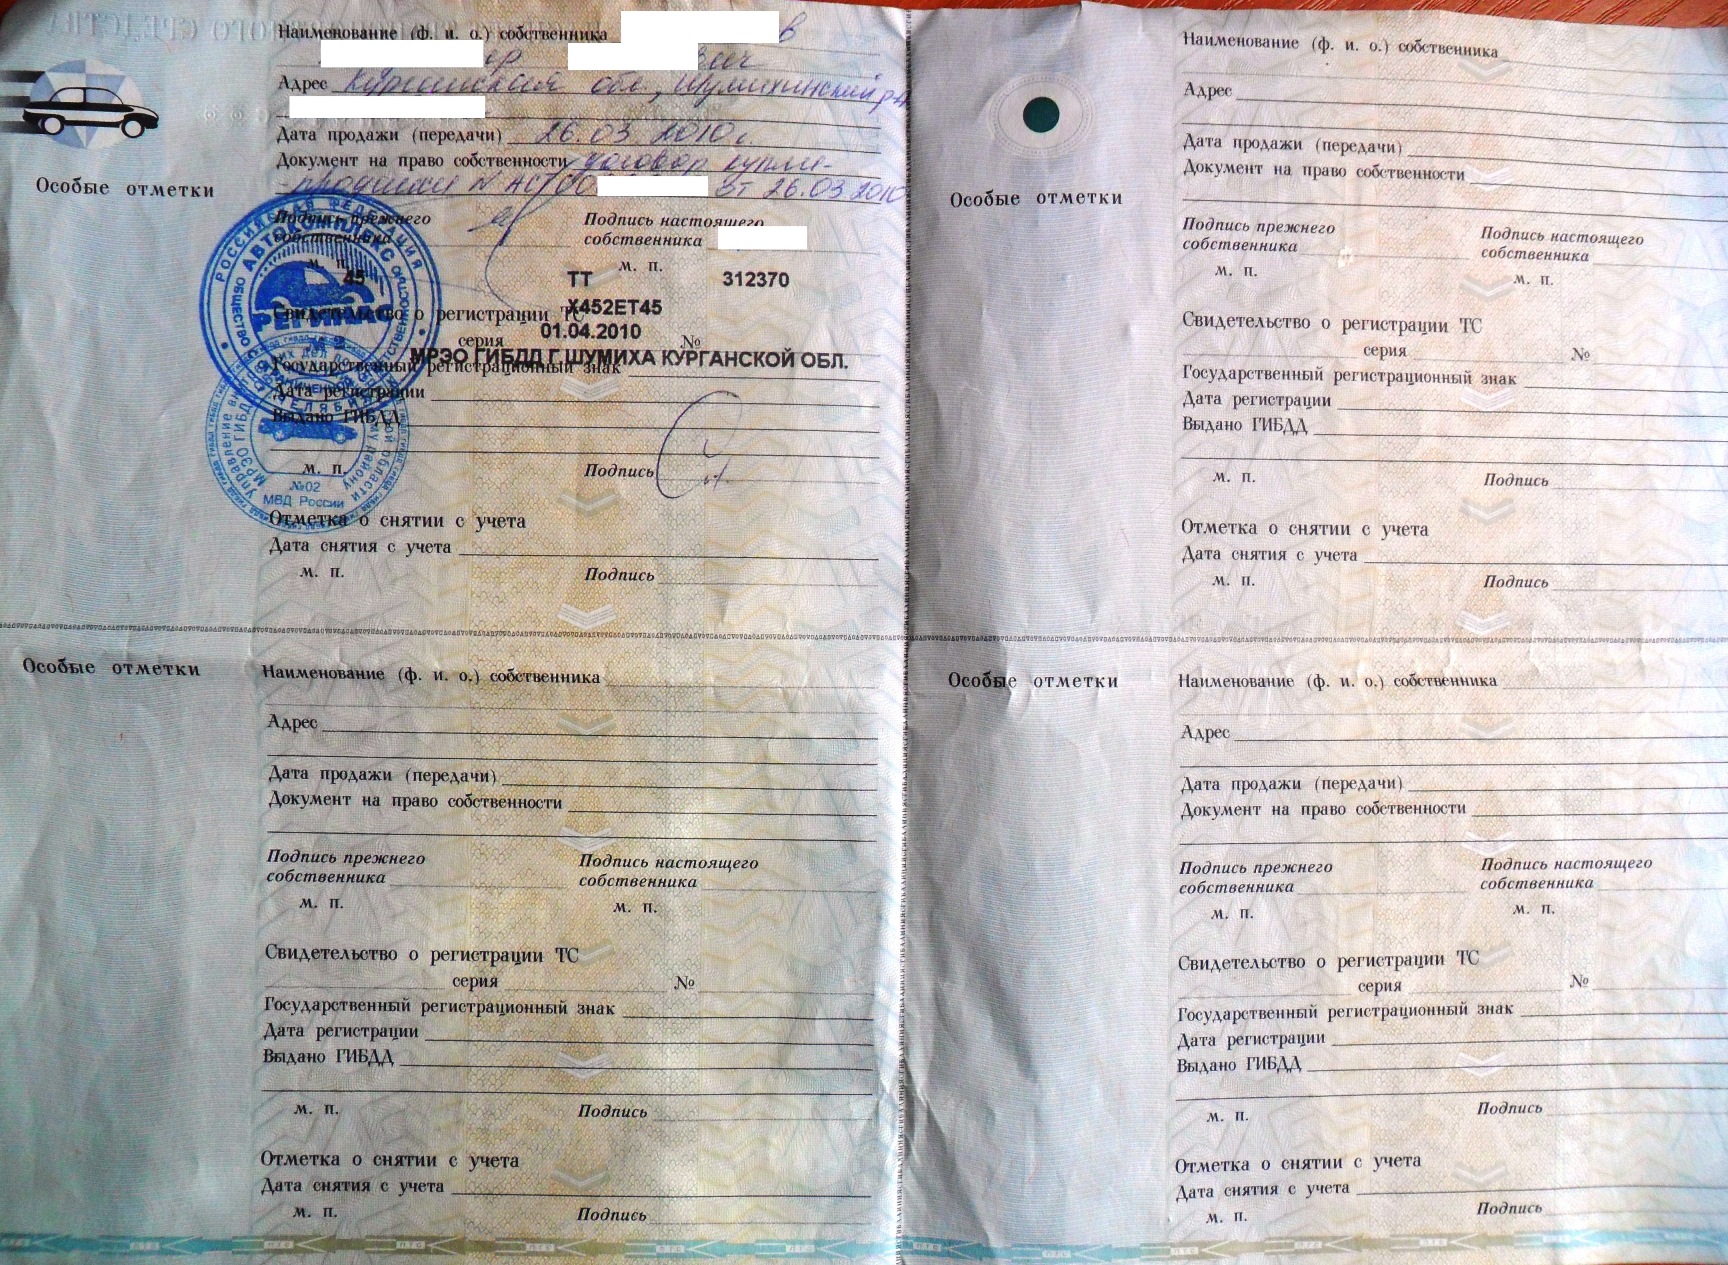 Наименование (ф. и. о.) собственника в
ер вич
Адрес Курганская обл, Шумихинский р-н
Дата продажи (передачи) 26.03 2010 г.
Документ на право собственности договор купли-
продажи N АСТ00 от 26.03.2010
Особые отметки
Подпись прежнего собственника
Подпись настоящего собственника
м. п.
м. п.
45 ТТ 312370
Свидетельство о регистрации ТС
Х452ЕТ45
серия №
01.04.2010
МРЭО ГИБДД Г.ШУМИХА КУРГАНСКОЙ ОБЛ.
Государственный регистрационный знак
Дата регистрации
Выдано ГИБДД
м. п. Подпись
РОССИЙСКАЯ ФЕДЕРАЦИЯ
АВТОКОМПЛЕКС
РЕГИНАС
№02
МВД России
Отметка о снятии с учета
Дата снятия с учета
м. п. Подпись
Наименование (ф. и. о.) собственника
Адрес
Дата продажи (передачи)
Документ на право собственности
Особые отметки
Подпись прежнего собственника
Подпись настоящего собственника
м. п.
м. п.
Свидетельство о регистрации ТС
серия №
Государственный регистрационный знак
Дата регистрации
Выдано ГИБДД
м. п. Подпись
Отметка о снятии с учета
Дата снятия с учета
м. п. Подпись
Особые отметки
Наименование (ф. и. о.) собственника
Адрес
Дата продажи (передачи)
Документ на право собственности
Подпись прежнего собственника
Подпись настоящего собственника
м. п.
м. п.
Свидетельство о регистрации ТС
серия №
Государственный регистрационный знак
Дата регистрации
Выдано ГИБДД
м. п. Подпись
Отметка о снятии с учета
Дата снятия с учета
м. п. Подпись
Особые отметки
Наименование (ф. и. о.) собственника
Адрес
Дата продажи (передачи)
Документ на право собственности
Подпись прежнего собственника
Подпись настоящего собственника
м. п.
м. п.
Свидетельство о регистрации ТС
серия №
Государственный регистрационный знак
Дата регистрации
Выдано ГИБДД
м. п. Подпись
Отметка о снятии с учета
Дата снятия с учета
м. п. Подпись